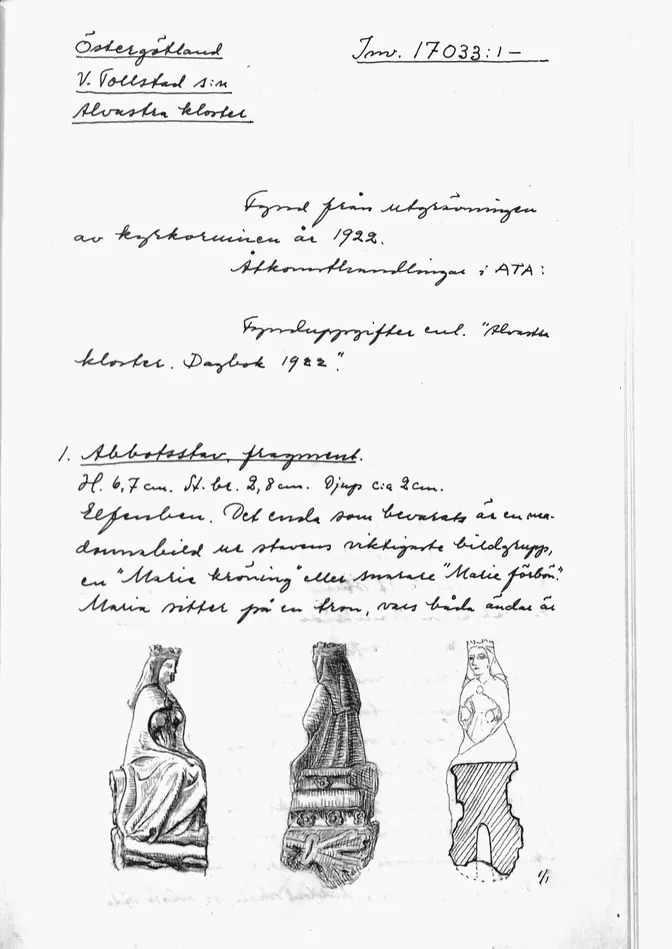 Östergötland
Inv. 17033:1-
V. Tollstad s:n
Alvastra kloster
Fynd från utgrävningen
av kyrkoruinen år 1922.
Åtkomsthandlingar i ATA:
Fynduppgifter enl. "Alvastra
kloster. Dagbok 1922".
1. Abbotsstav, fragment.
H. 6,7 cm. St. br. 2,8 cm. Djup c:a 2 cm.
Elfenben. Det enda som bevarats är en ma-
donnabild ur stavens viktigaste bildgrupp,
en "Marie kröning" eller snarare "Marie förbön".
Maria sitter på en tron, vars båda ändar är
1/1